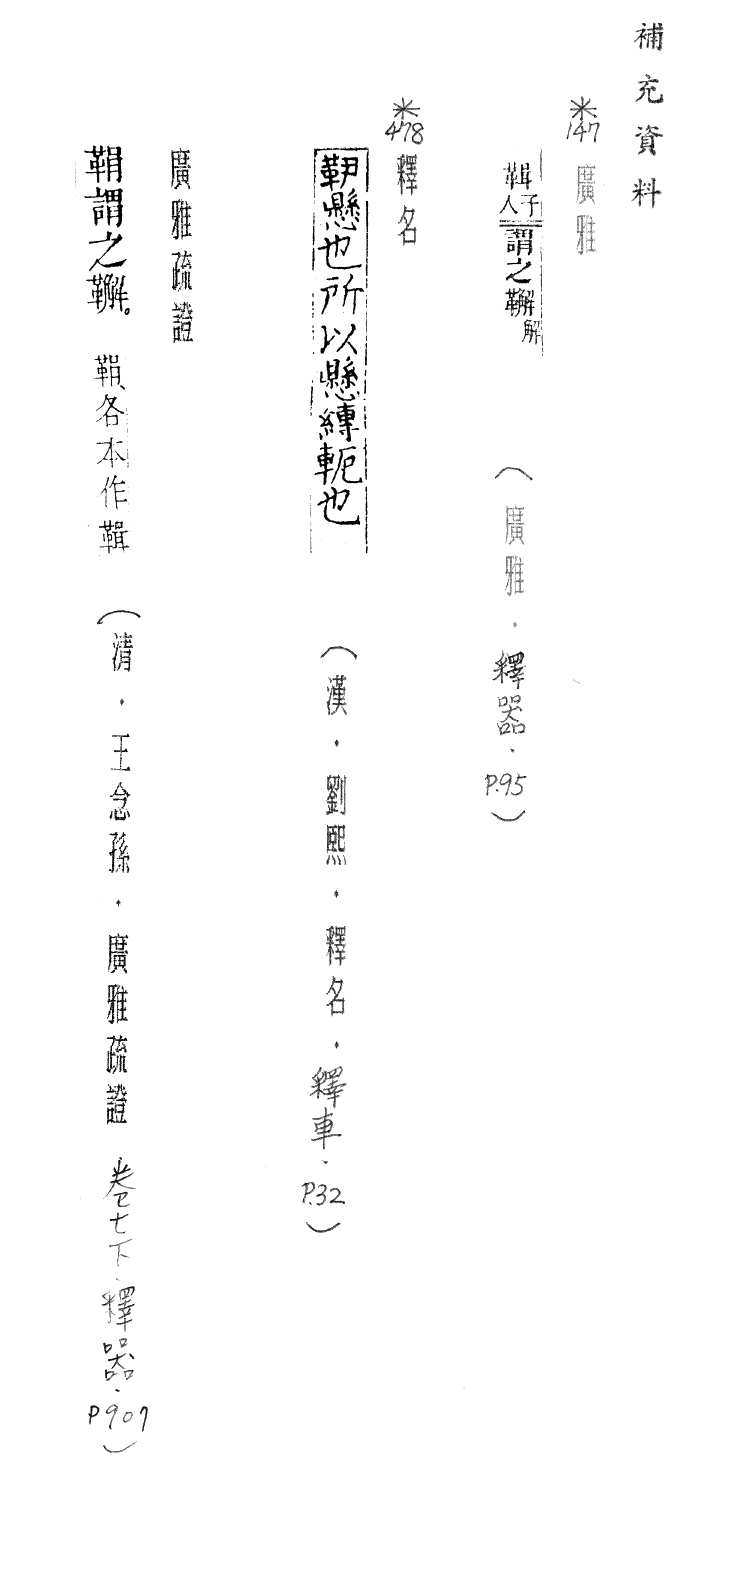 補充資料
※147 廣雅
鞙人子謂之䩺解
(廣雅·釋器·P.95)
※478 釋名
懸也所以懸縛軛也
(漢·劉熙·釋名·釋車·P.32)
廣雅疏證
鞙謂之䩺。鞙、各本作鞙
(清·王念孫·廣雅疏證 卷七下·釋器·P907)